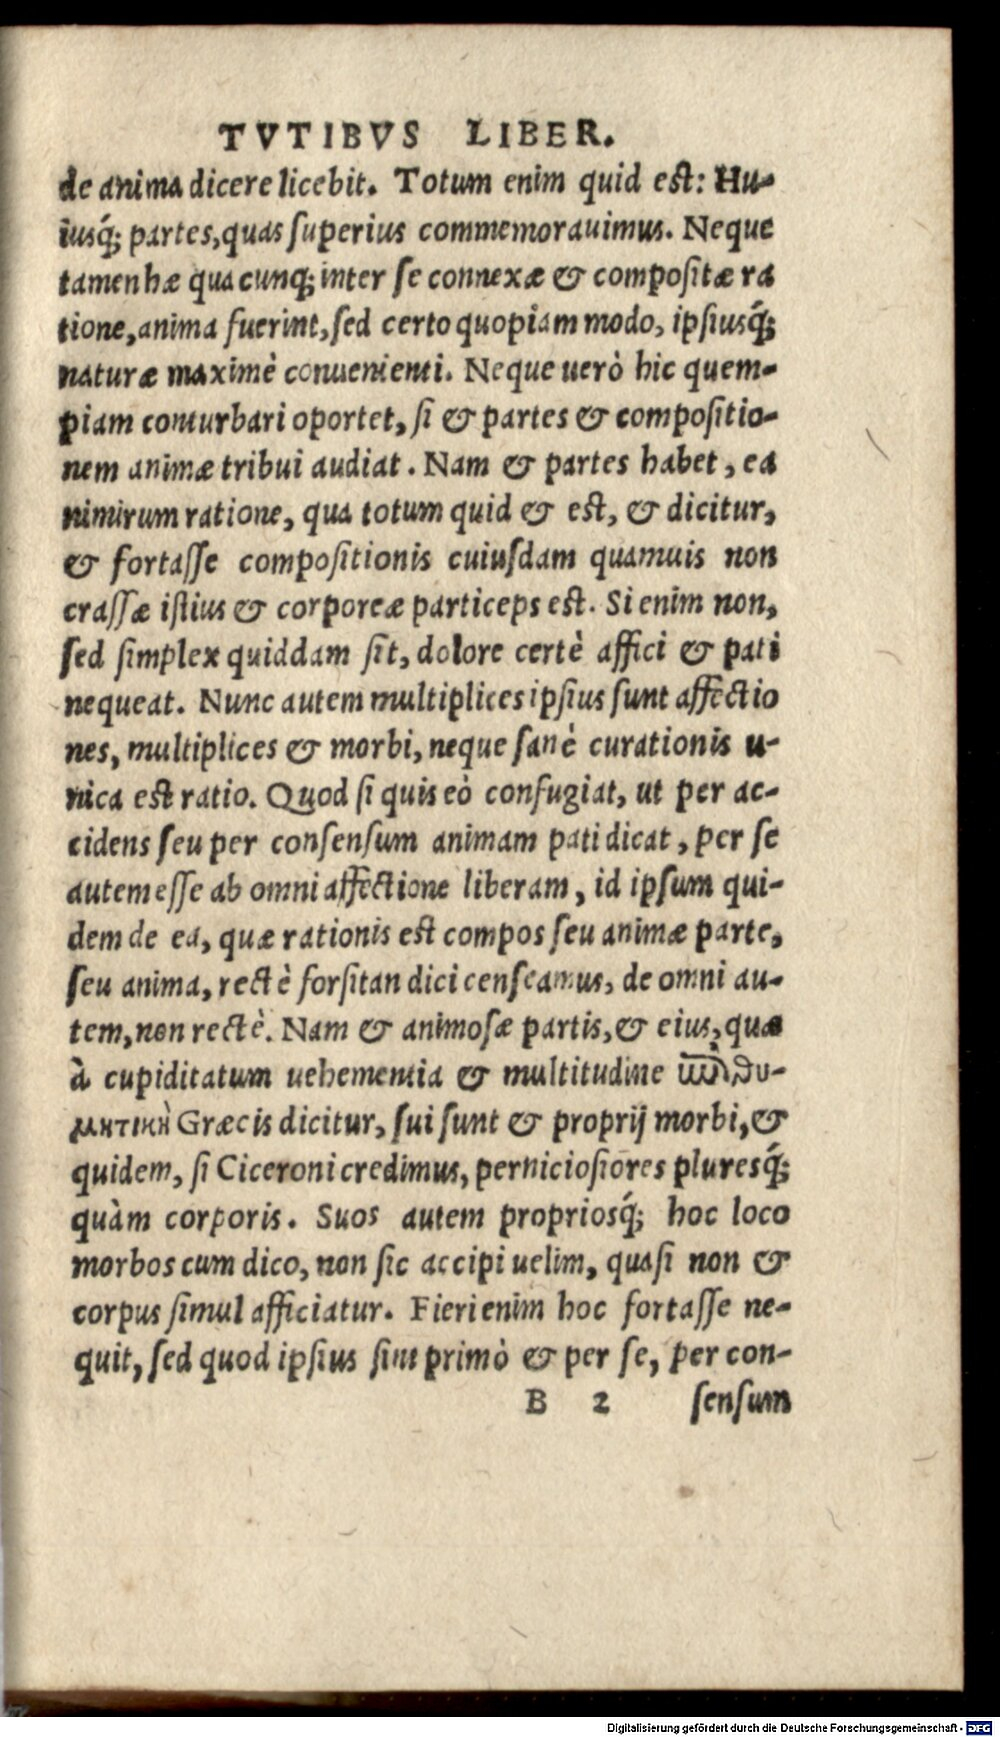 TVTIBVS LIBER.
de anima dicere licebit. Totum enim quid est: Hu-
iusq́; partes, quas superius commemorauimus. Neque
tamen hæ quacunq; inter se connexæ & compositæ ra
tione, anima fuerint, sed certo quopiam modo, ipsiusq́;
naturæ maximè conuenienti. Neque uerò hic quem-
piam conturbari oportet, si & partes & compositio-
nem animæ tribui audiat. Nam & partes habet, ea
nimirum ratione, qua totum quid & est, & dicitur,
& fortasse compositionis cuiusdam quamuis non
crassæ istius & corporeæ particeps est. Si enim non,
sed simplex quiddam sit, dolore certè affici & pati
nequeat. Nunc autem multiplices ipsius sunt affectio
nes, multiplices & morbi, neque sanè curationis u-
nica est ratio. Quod si quis eò confugiat, ut per ac-
cidens seu per consensum animam pati dicat, per se
autem esse ab omni affectione liberam, id ipsum qui-
dem de ea, quæ rationis est compos seu animæ parte,
seu anima, rectè forsitan dici censeamus, de omni au-
tem, non rectè. Nam & animosæ partis, & eius, quæ
à cupiditatum uehementia & multitudine ἐπιθυ-
μητικὴ Græcis dicitur, sui sunt & proprij morbi, &
quidem, si Ciceroni credimus, perniciosiores pluresq́;
quàm corporis. Suos autem propriosq́; hoc loco
morbos cum dico, non sic accipi uelim, quasi non &
corpus simul afficiatur. Fieri enim hoc fortasse ne-
quit, sed quod ipsius sint primò & per se, per con-
B 2 sensum
Digitalisierung gefördert durch die Deutsche Forschungsgemeinschaft - DFG